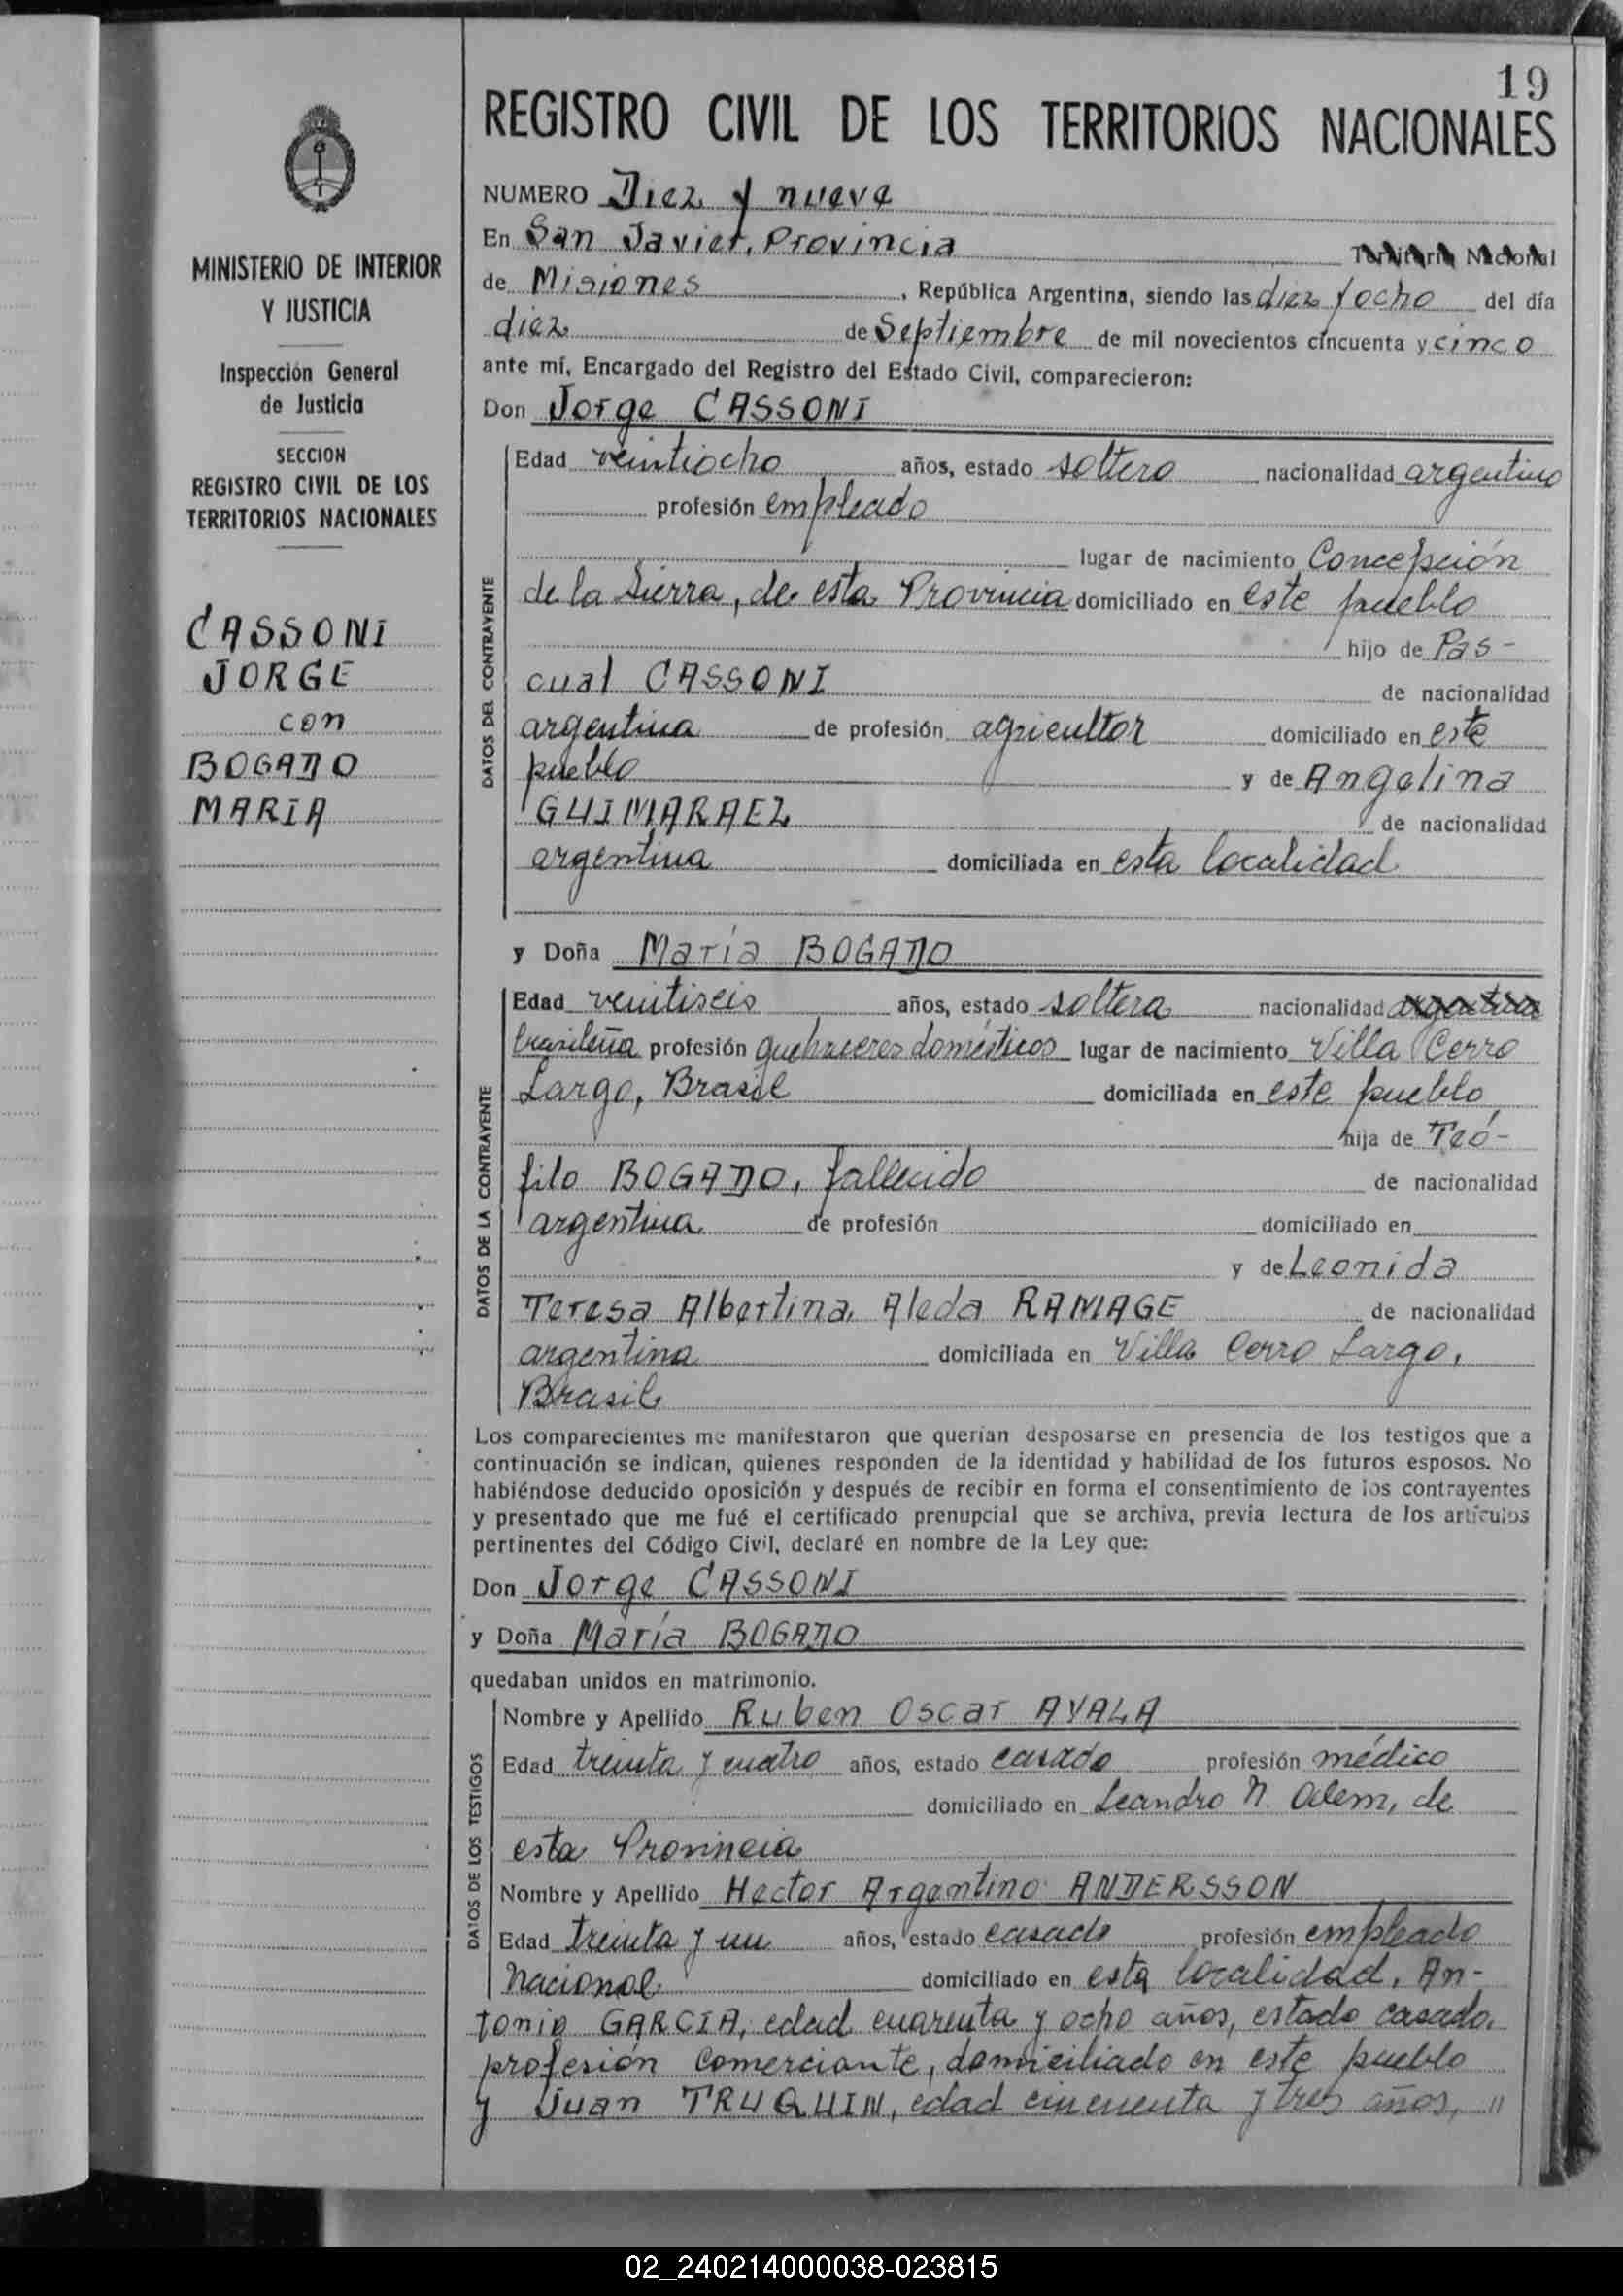 19
REGISTRO CIVIL DE LOS TERRITORIOS NACIONALES
NUMERO Diez y nueve
En San Javier, Provincia Territorio Nacional
de Misiones, República Argentina, siendo las diez y ocho del día
diez de Septiembre de mil novecientos cincuenta y cinco
ante mí, Encargado del Registro del Estado Civil, comparecieron:
Don Jorge CASSONI
DATOS DEL CONTRAYENTE
Edad veintiocho años, estado soltero nacionalidad argentino
profesión empleado
lugar de nacimiento Concepción
de la Sierra, de esta Provincia domiciliado en este pueblo
hijo de Pas-
cual CASSONI de nacionalidad
argentina de profesión agricultor domiciliado en este
pueblo y de Angelina
GUIMARAEZ de nacionalidad
argentina domiciliada en esta localidad
y Doña María BOGADO
DATOS DE LA CONTRAYENTE
Edad veintiseis años, estado soltera nacionalidad argentina
brasileña profesión quehaceres domésticos lugar de nacimiento Villa Cerro
Largo, Brasil domiciliada en este pueblo,
hija de Teó-
filo BOGADO, fallecido de nacionalidad
argentina de profesión domiciliado en
y de Leonida
Teresa Albertina Aleda RAMAGE de nacionalidad
argentina domiciliada en Villa Cerro Largo,
Brasil
Los comparecientes me manifestaron que querían desposarse en presencia de los testigos que a
continuación se indican, quienes responden de la identidad y habilidad de los futuros esposos. No
habiéndose deducido oposición y después de recibir en forma el consentimiento de los contrayentes
y presentado que me fué el certificado prenupcial que se archiva, previa lectura de los artículos
pertinentes del Código Civil, declaré en nombre de la Ley que:
Don Jorge CASSONI
y Doña María BOGADO
quedaban unidos en matrimonio.
DATOS DE LOS TESTIGOS
Nombre y Apellido Ruben Oscar AYALA
Edad treinta y cuatro años, estado casado profesión médico
domiciliado en Leandro N. Alem, de
esta Provincia
Nombre y Apellido Hector Argentino ANDERSSON
Edad treinta y un años, estado casado profesión empleado
nacional domiciliado en esta localidad, An-
tonio GARCIA, edad cuarenta y ocho años, estado casado,
profesión comerciante, domiciliado en este pueblo
y Juan TRUQUIN, edad cincuenta y tres años, "
MINISTERIO DE INTERIOR
Y JUSTICIA
Inspección General
de Justicia
SECCION
REGISTRO CIVIL DE LOS
TERRITORIOS NACIONALES
CASSONI
JORGE
con
BOGADO
MARIA
02_240214000038-023815